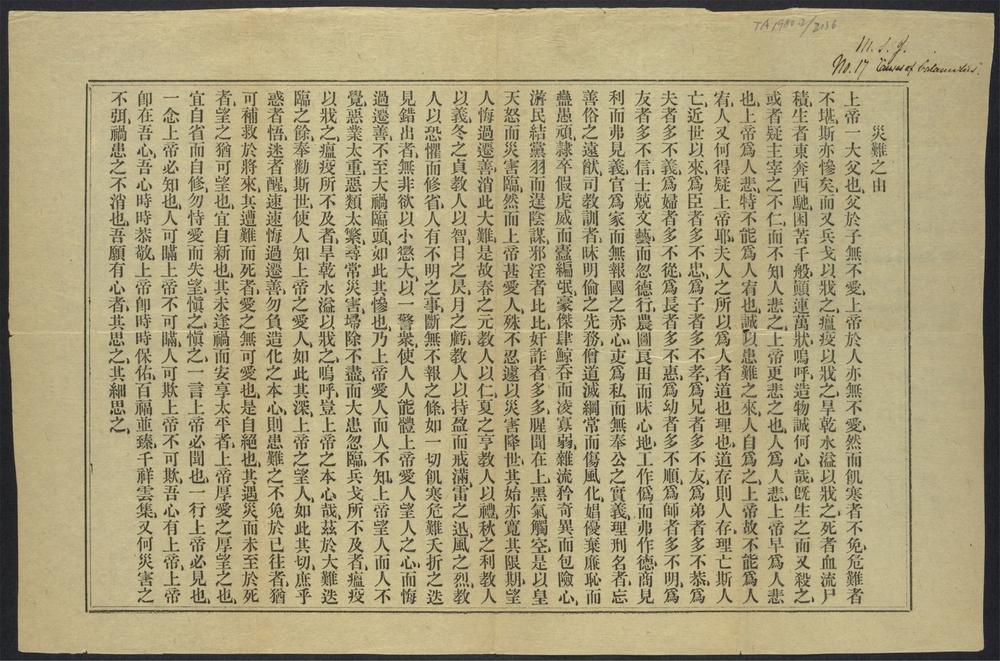 TA 1980.2/2136
M. S. J.
No. 17 Causes of Calamities.
災難之由
上帝一大父也、父於子無不愛、上帝於人亦無不愛、然而飢寒者不免、危難者
不堪、斯亦慘矣、而又兵戈以戕之、瘟疫以戕之、旱乾水溢以戕之、死者血流尸
積、生者東奔西馳、困苦千般、顚連萬狀、嗚呼、造物誠何心哉、旣生之而又殺之、
或者疑主宰之不仁、而不知人悲之、上帝更悲之也、人爲人悲、上帝早爲人悲
也、上帝爲人悲、特不能爲人宥也、誠以患難之來、人自爲之、上帝故不能爲人
宥、人又何得疑上帝耶、夫人之所以爲人者道也、理也、道存則人存、理亡斯人
亡、近世以來、爲臣者多不忠、爲子者多不孝、爲兄者多不友、爲弟者多不恭、爲
夫者多不義、爲婦者多不從、爲長者多不惠、爲幼者多不順、爲師者多不明、爲
友者多不信、士競文藝而忽德行、農圖良田而昧心地、工作僞而弗作德、商見
利而弗見義、官爲家而無報國之赤心、吏爲私而無奉公之實義、理刑名者、忘
善俗之遠猷、司敎訓者、昧明倫之先務、僧道滅綱常而傷風化、娼優棄廉恥而
蠱愚頑、隸卒假虎威而蠹編氓、豪傑肆鯨吞而凌寡弱、雜流矜奇異而包險心、
游民結黨羽而逞陰謀、邪淫者比比、奸詐者多多、腥聞在上、黑氣觸空、是以皇
天怒而災害臨、然而上帝甚愛人、殊不忍遽以災害降世、其始亦寬其限期、望
人悔過遷善、消此大難、是故春之元敎人以仁、夏之亨敎人以禮、秋之利敎人
以義、冬之貞敎人以智、日之昃月之虧敎人以持盈而戒滿、雷之迅風之烈敎
人以恐懼而修省、人有不明之事、斷無不報之條、如一切飢寒危難夭折之迭
見錯出者、無非欲以小懲大、以一警衆、使人人能體上帝愛人望人之心、而悔
過遷善、不至大禍臨頭、如此其慘也、乃上帝愛人而人不知、上帝望人而人不
覺、惡業太重、惡類太繁、尋常災害、埽除不盡、而大患忽臨、兵戈所不及者、瘟疫
以戕之、瘟疫所不及者、旱乾水溢以戕之、嗚呼、豈上帝之本心哉、茲於大難迭
臨之餘、奉勸斯世、使人知上帝之愛人如此其深、上帝之望人、如此其切、庶乎
惑者悟、迷者醒、速速悔過遷善、勿負造化之本心、則患難之不免於已往者、猶
可補救於將來、其遭難而死者、愛之無可愛也、是自絕也、其遇災而未至於死
者、望之猶可望也、宜自新也、其未逢禍而安享太平者、上帝厚愛之厚望之也、
宜自省而自修、勿恃愛而失望、愼之愼之、一言上帝必聞也、一行上帝必見也、
一念上帝必知也、人可瞞、上帝不可瞞、人可欺、上帝不可欺、吾心有上帝、上帝
卽在吾心、吾心時時恭敬、上帝卽時時保佑、百福並臻、千祥雲集、又何災害之
不弭、禍患之不消也、吾願有心者、其思之、其細思之、